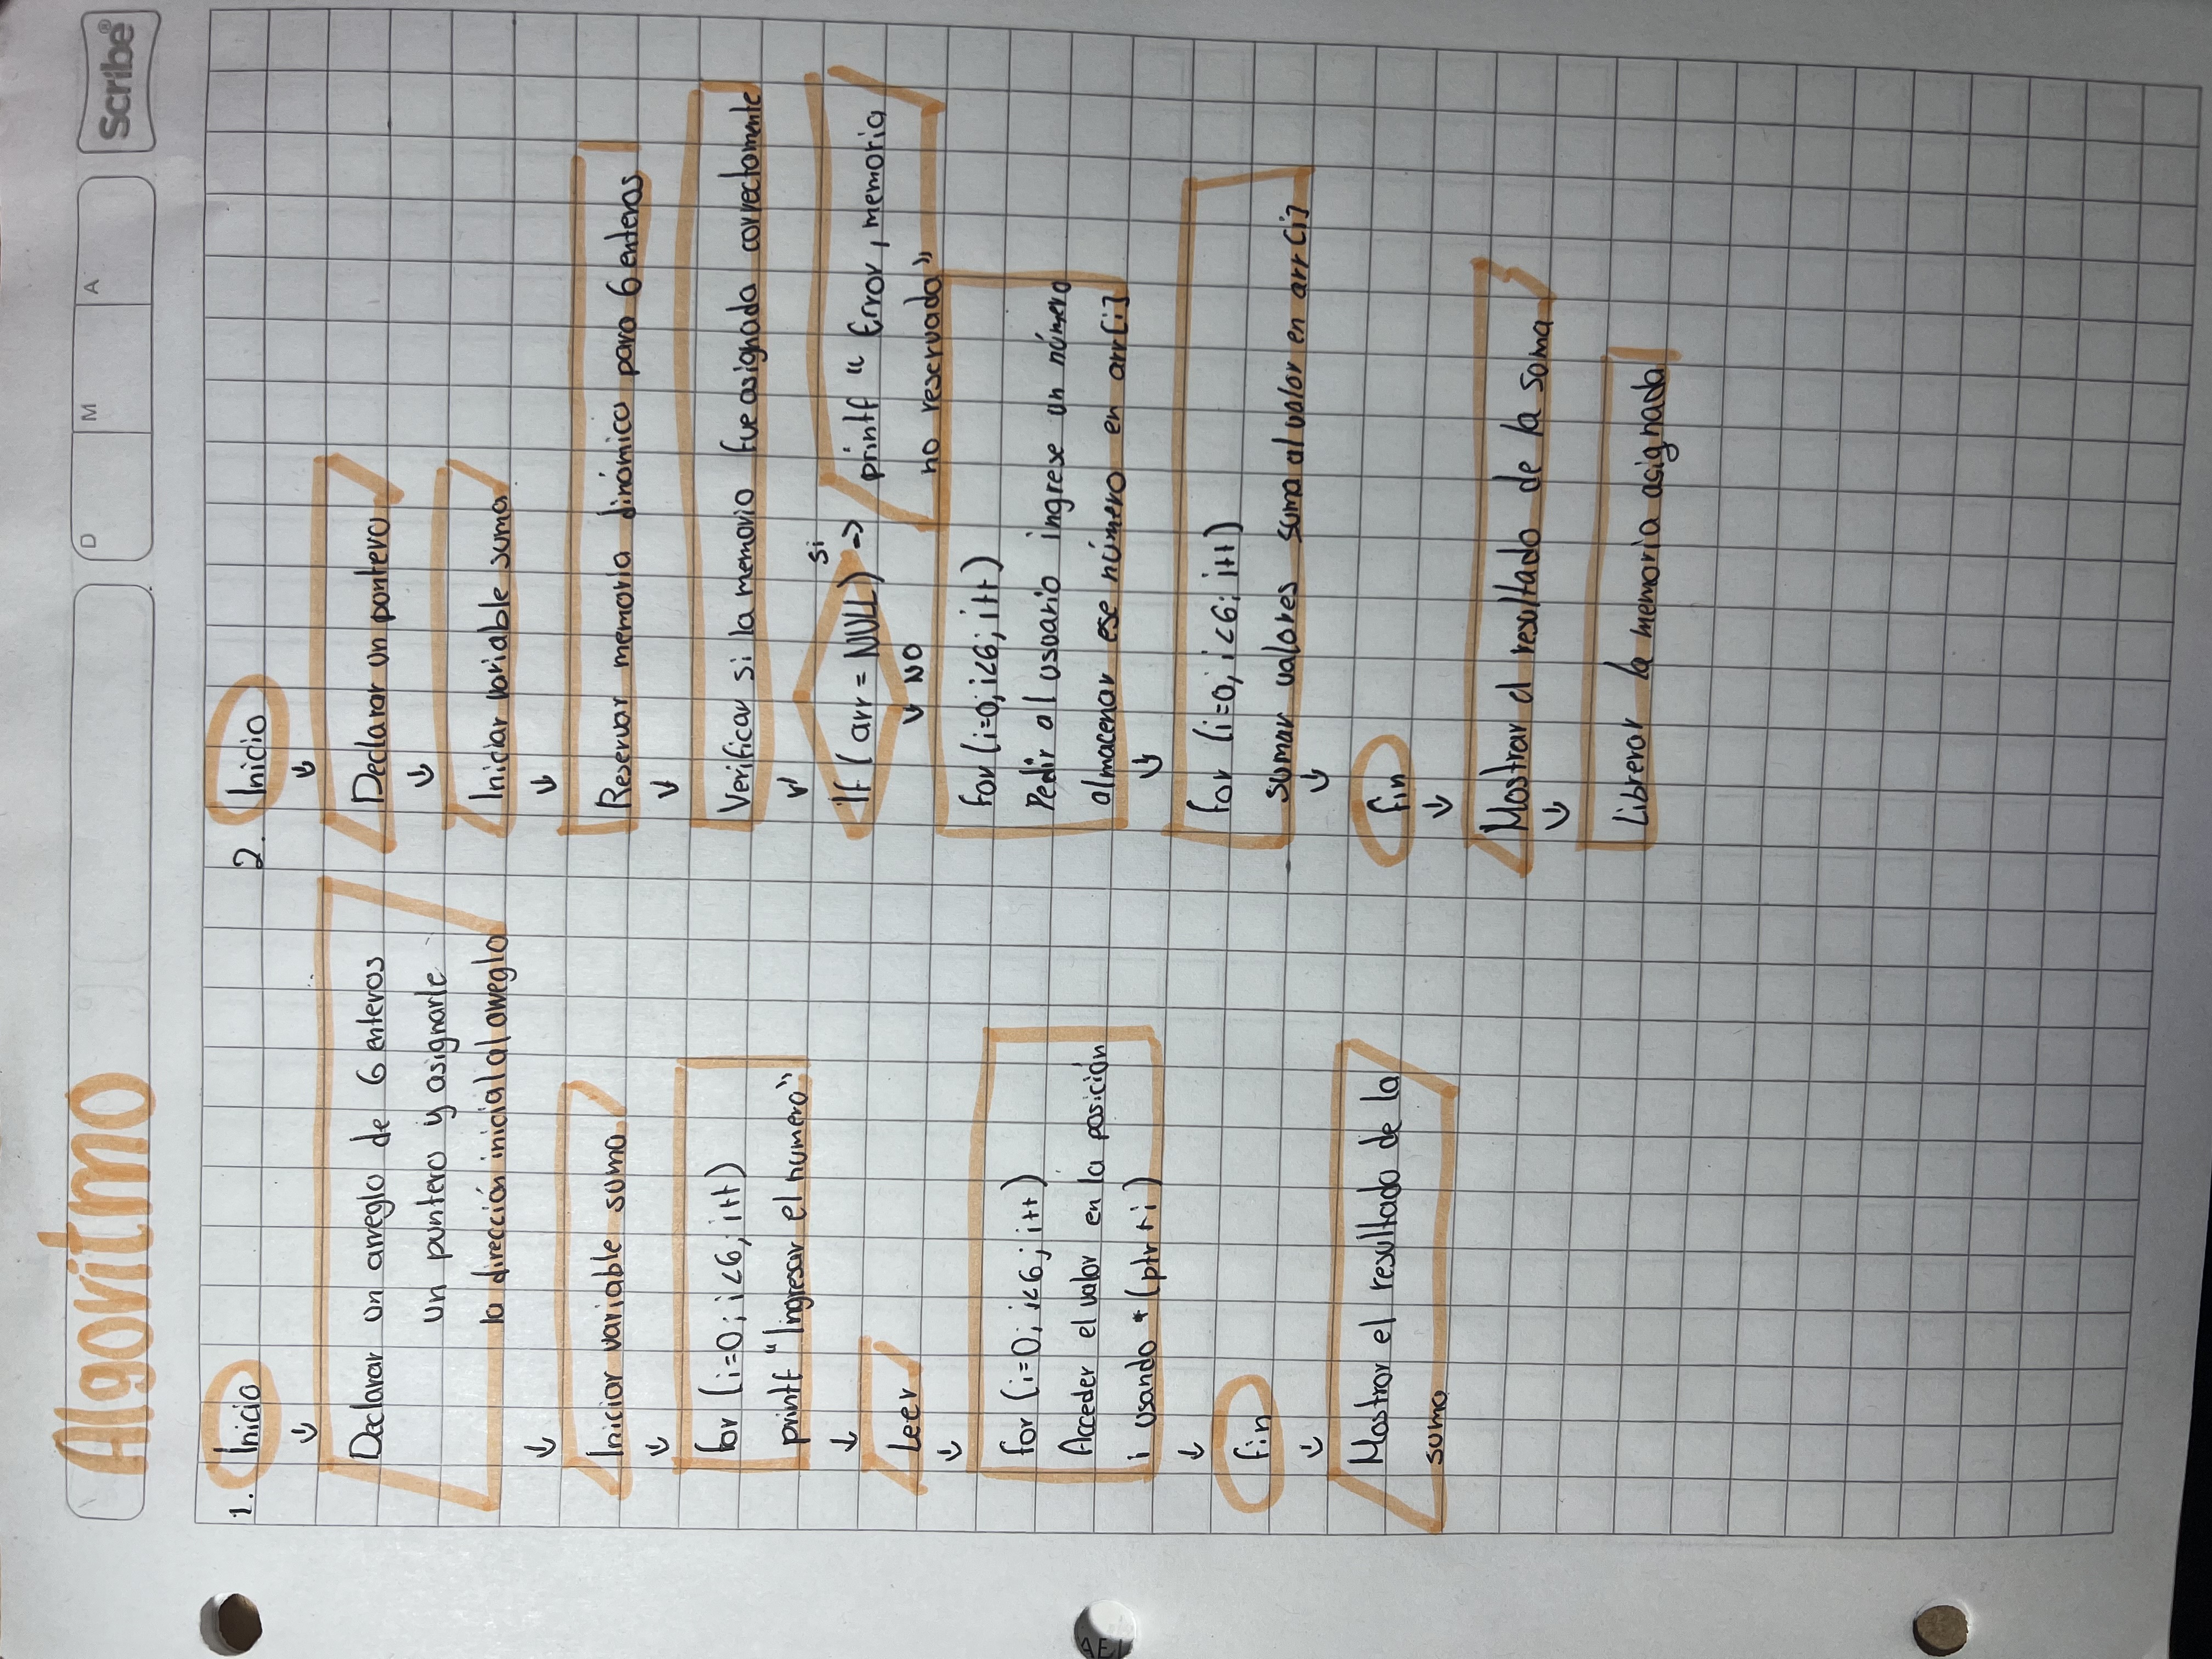 Algoritmo
D M A
Scribe®
1. Inicio
Declarar un arreglo de 6 enteros
un puntero y asignarle
la dirección inicial al arreglo
Iniciar variable suma
for (i=0; i<6; i++)
printf "Ingresar el numero"
Leer
for (i=0; i<6; i++)
Acceder el valor en la posición
i usando *(ptr+i)
fin
Mostrar el resultado de la
suma
2. Inicio
Declarar un pontero
Iniciar variable suma
Reservar memoria dinámica para 6 enteros
Verificar si la memoria fue asignada correctamente
If (arr = NULL) -> si
printf " Error, memoria
no reservada"
NO
for (i=0; i<6; i++)
Pedir al usuario ingrese un número
almacenar ese número en arr[i]
for (i=0; i<6; i++)
sumar valores suma al valor en arr[i]
fin
Mostrar el resultado de la suma
Librerar la memoria asignada